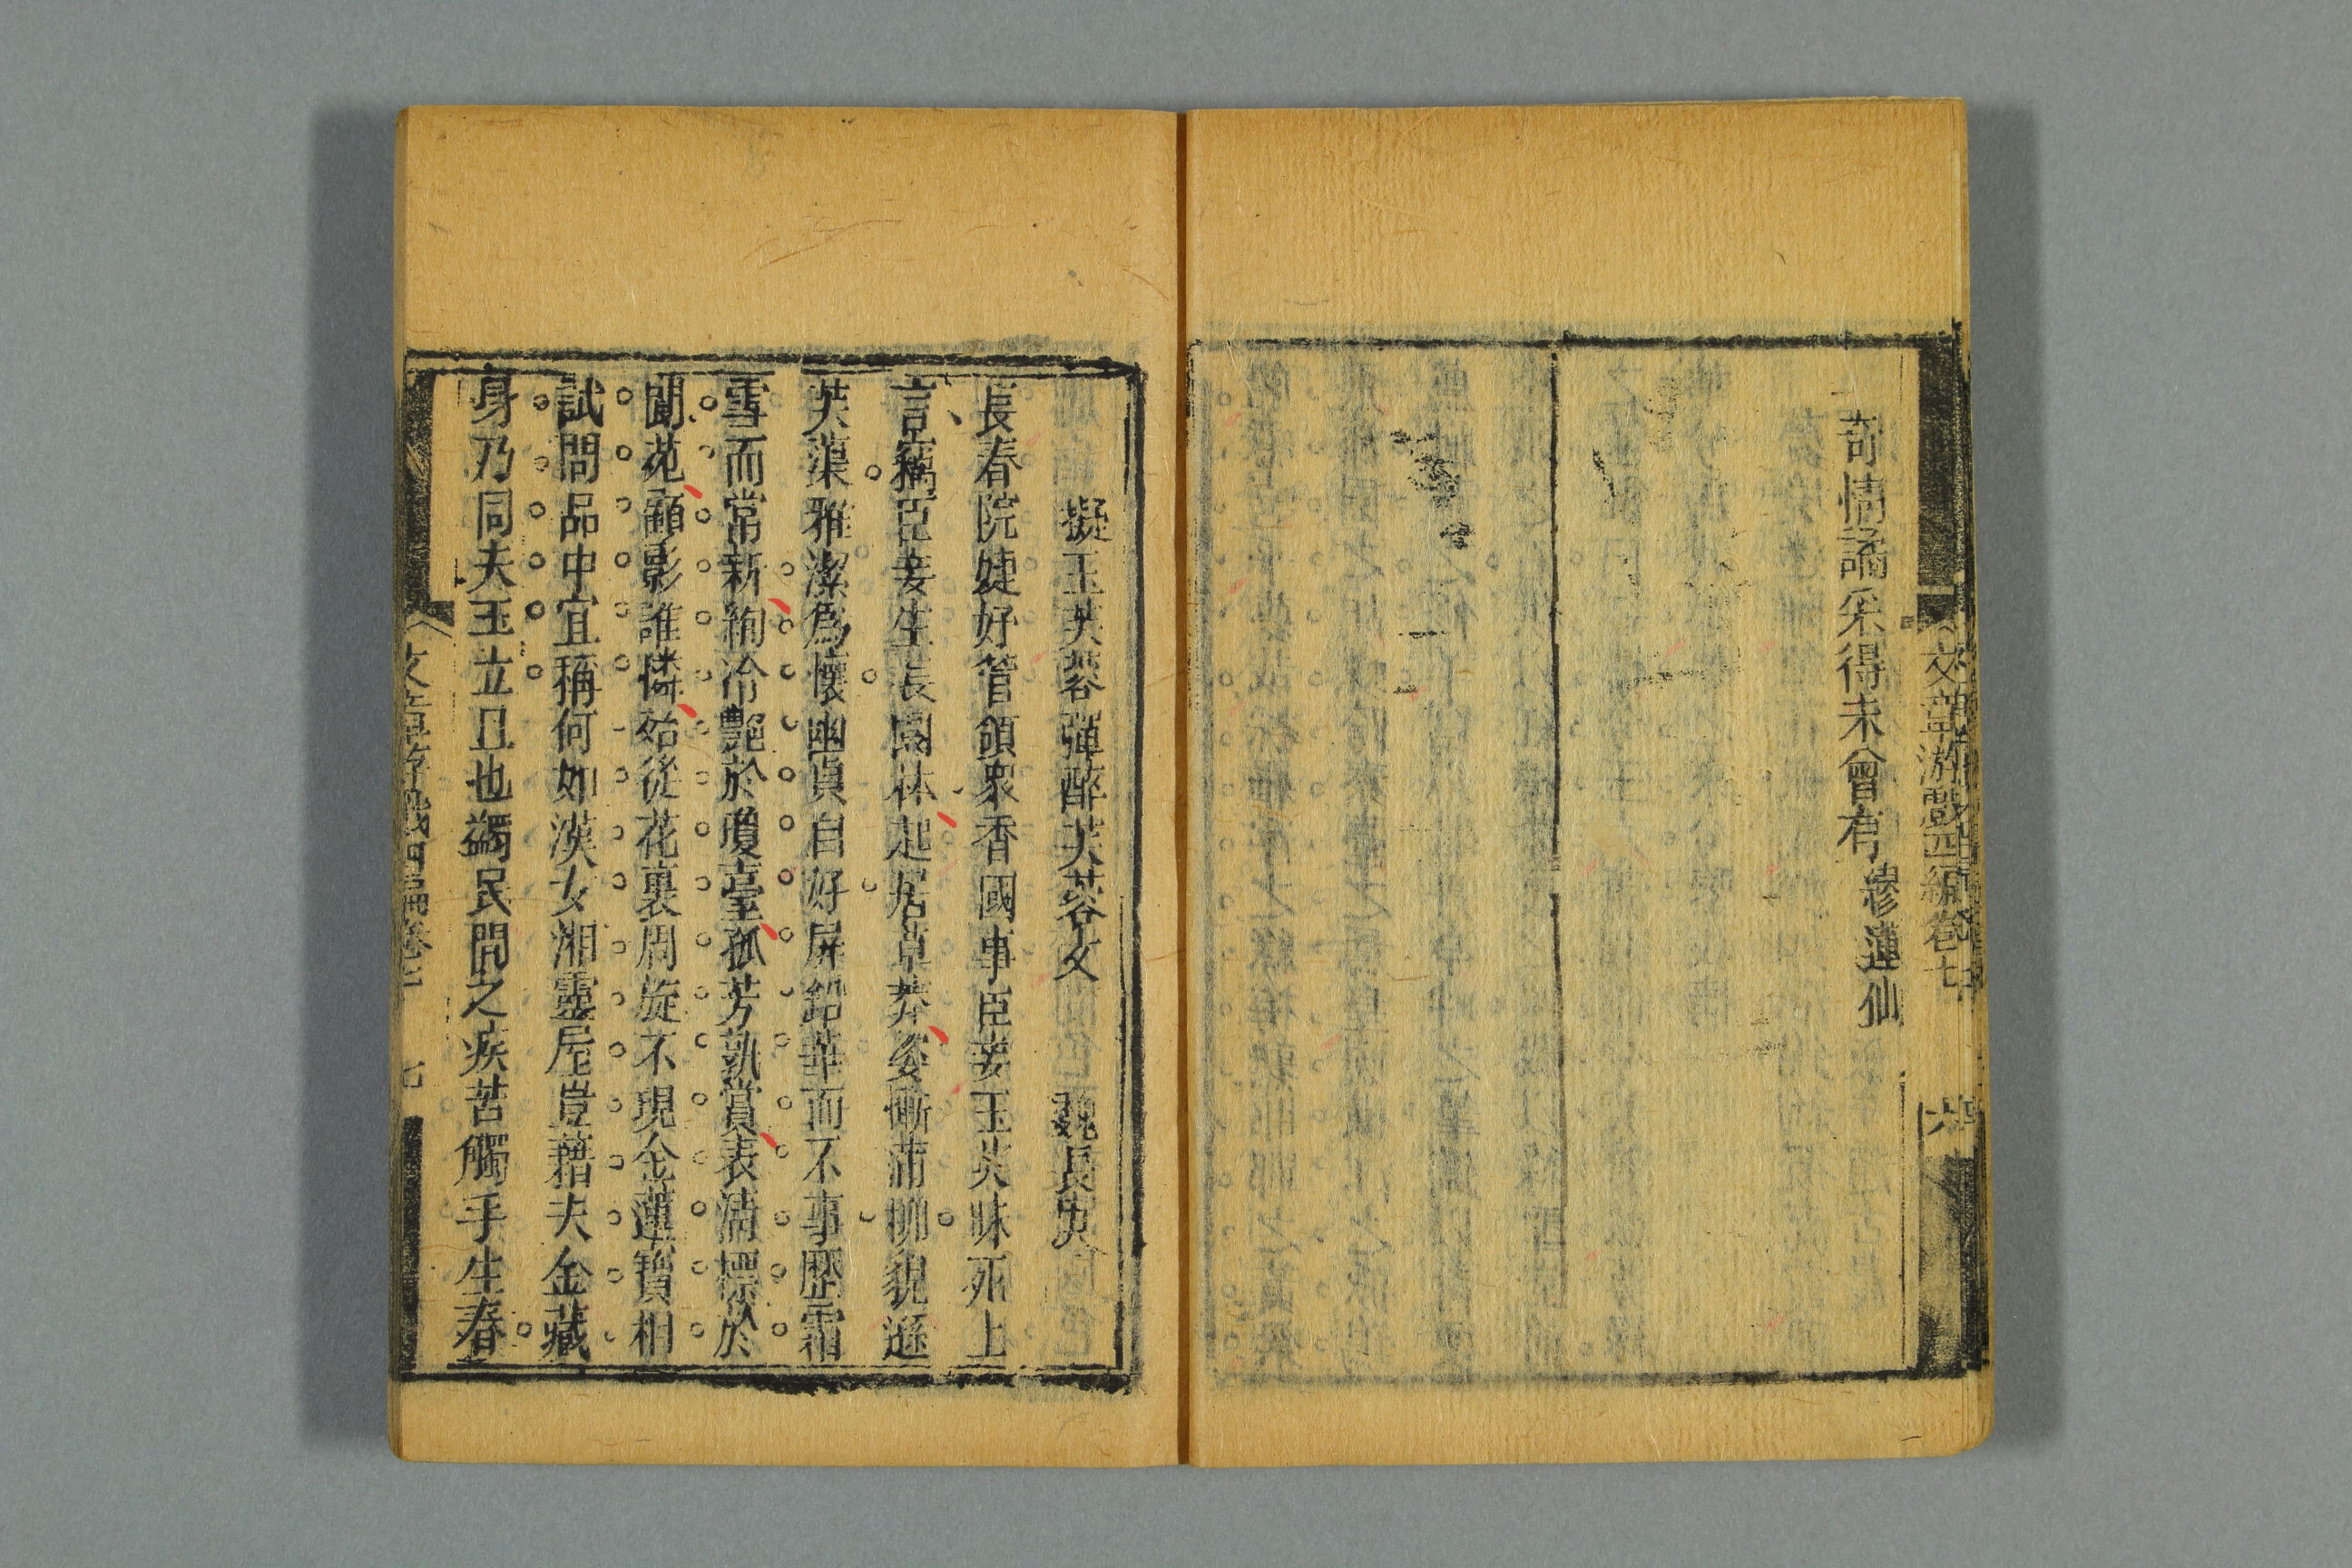 文章游戲四編卷七
六
奇情譎采得未曾有 繆蓮仙
擬玉芙蓉彈醉芙蓉文 魏長史
長春院婕妤管領衆香國事臣妾玉芙昧死上
言竊臣妾生長園林起居草莽姿慚蒲柳貌遜
芙蕖雅潔爲懷幽貞自好屏鉛華而不事歷霜
雪而常新絢冷艷於瓊臺孤芳孰賞表淸標於
閬苑顧影誰憐始從花裏周旋不現金蓮寶相
試問品中宜稱何如漢女湘靈屋豈藉夫金藏
身乃同夫玉立且也蠲民間之疾苦觸手生春
文章游戲四編卷七
七